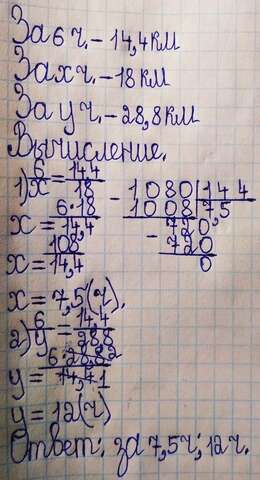 За 6 ч. - 14,4 км
За х ч. - 18 км
За у ч. - 28,8 км
Вычисление.
1) 6/х = 14,4/18
х = 6·18/14,4
х = 108/14,4
1080 | 144
1008 | 7,5
720
720
0
х = 7,5 (ч).
2) 6/у = 14,4/28,8
у = 6·28,8 2/14,4 1
у = 12 (ч)
Ответ: за 7,5 ч; 12 ч.